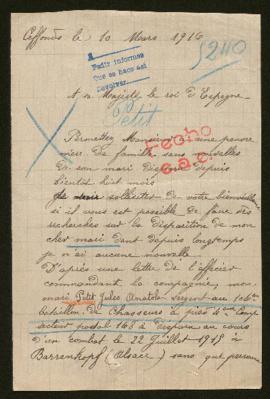 Ceffonds le 10 Mars 1916
5240
Pedir informes
Que se haga así
Devolver
A sa Majesté le roi d'Espagne
Petit
Permettez Monsieur à une pauvre
mère de famille sans nouvelles
de son mari disparu depuis
bientôt huit mois
Hecho
de solliciter de votre bienveillance
si il vous est possible de faire des
recherches sur la disparition de mon
cher mari dont depuis longtemps
je n'ai aucune nouvelle
D'après une lettre de l'officier
commandant la compagnie, mon
mari Petit Jules Anatole Sergent au 106me
bataillon de Chasseurs à pied 4me Comp
secteur postal 168 a disparu au cours
d'un combat le 22 Juillet 1915 à
Barrenkopf (Alsace) sans que personne